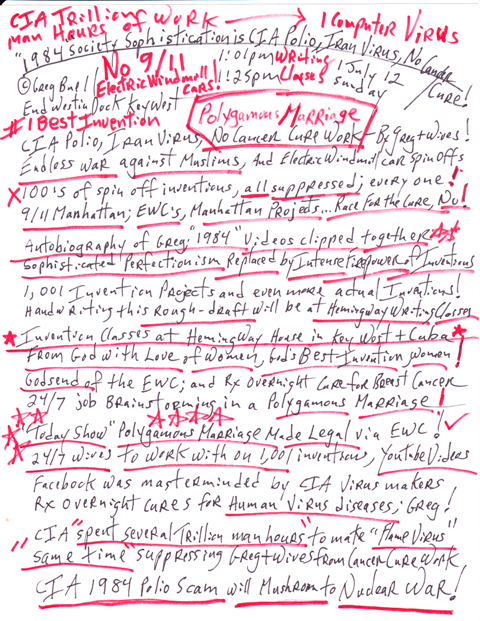 CIA Trillion of WORK → 1 Computer VIRUS
man HOURS of
"1984 Society Sophistication is CIA Polio, Iran Virus, No Cancer Cure!
No 9/11 1:01pm WRITING 1 July 12
© Greg Buell Electric Windmill Cars! 1:25pm Classes Sunday
End Westin Dock Key West
#1 Best Invention Polygamous Marriage
CIA Polio, Iran Virus, No Cancer Cure Work - Rx Greg + wives!
Endless war against Muslims, And Electric Windmill car spin offs
X 100's of spin off inventions, all suppressed; every one!
9/11 Manhattan; EWC's, Manhattan Projects... Race For the Cure, No!
Autobiography of Greg "1984" Videos clipped together
Sophisticated Perfectionism Replaced by Intense Firepower of Inventions
1,001 Invention Projects and even more actual Inventions!
Handwriting this Rough-draft will be at Hemingway Writing Classes
Invention Classes at HemingWay House in Key West + Cuba
From God with Love of Women, God's Best Invention women!
Godsend of the EWC; and Rx Overnight Cure for Breast Cancer
24/7 job Brainstorming in a Polygamous Marriage!
"Today Show" Polygamous Marriage Made Legal via EWC!
24/7 wives to work with on 1,001 inventions, Youtube Videos
Facebook was masterminded by CIA Virus makers
Rx overnight cures for Human Virus diseases, Greg!
"CIA "spent several Trillion man hours" to make "Flame Virus"
same time" suppressing Greg + Wives from Cancer Cure Work
CIA 1984 Polio Scam will Mushroom to Nuclear War!